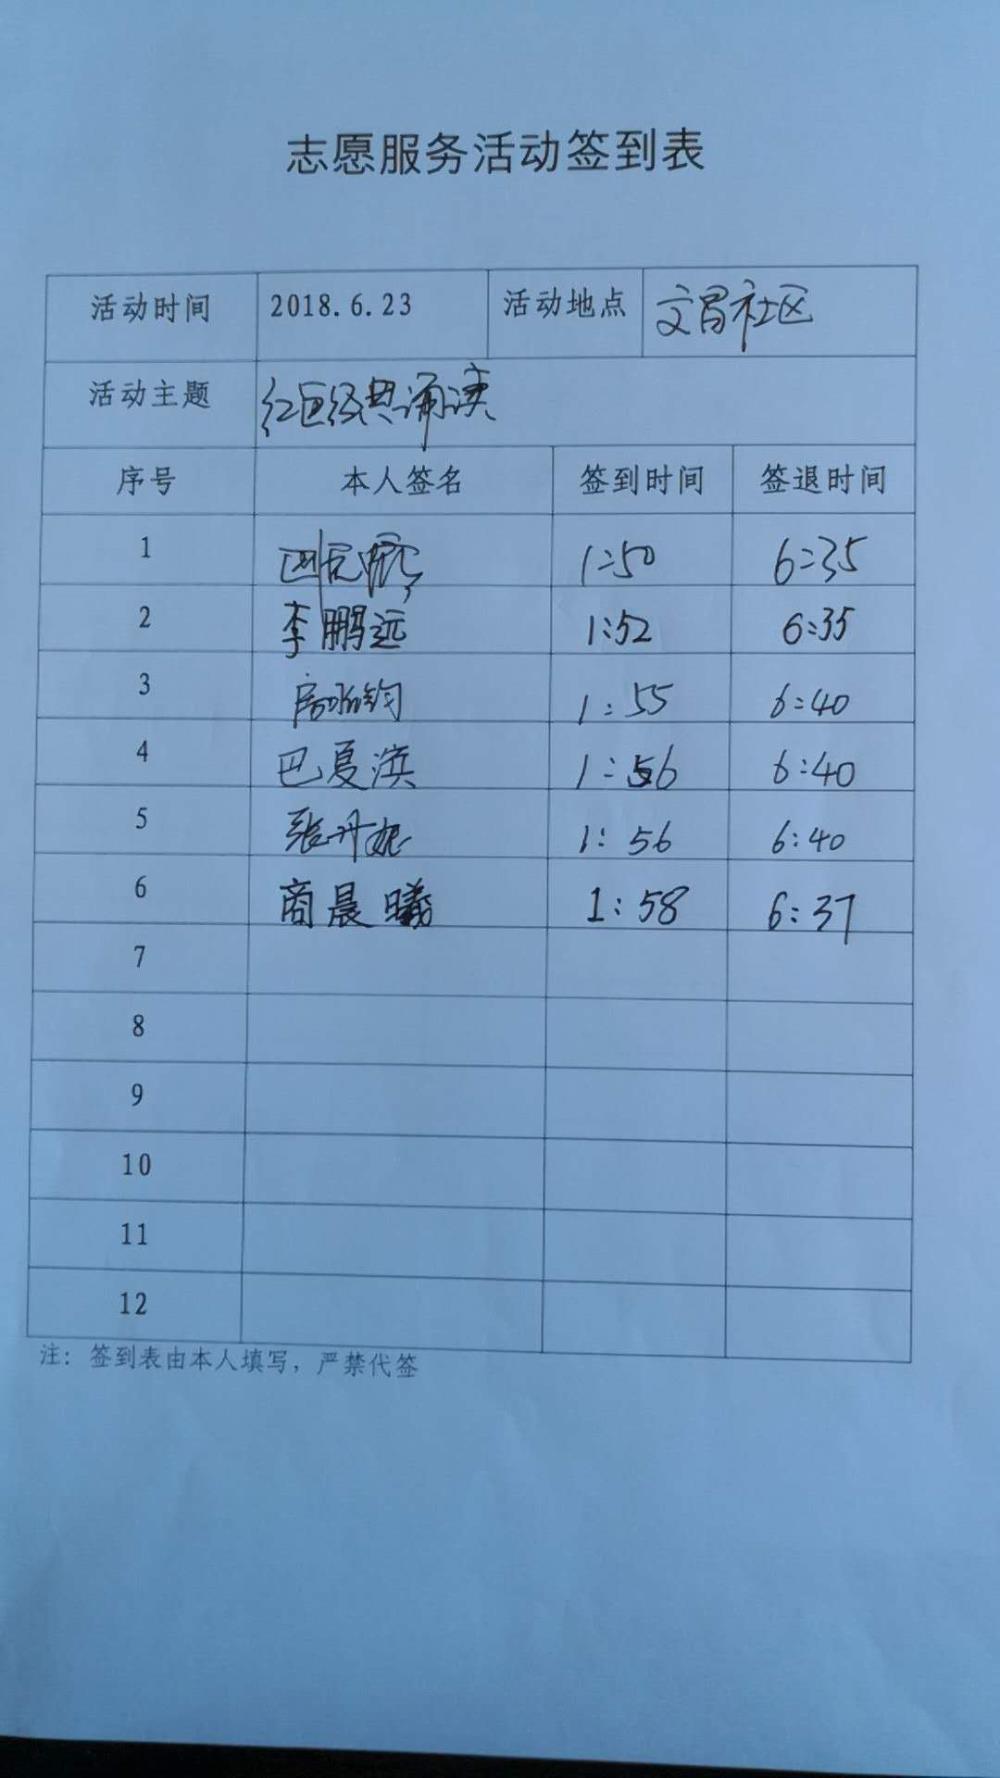 志愿服务活动签到表
活动时间 2018.6.23 活动地点 文昌社区
活动主题 红色经典诵读
序号 本人签名 签到时间 签退时间
1 1:50 6:35
2 李鹏远 1:52 6:35
3 1:55 6:40
4 巴夏滨 1:56 6:40
5 张丹妮 1:56 6:40
6 商晨曦 1:58 6:37
7
8
9
10
11
12
注：签到表由本人填写，严禁代签